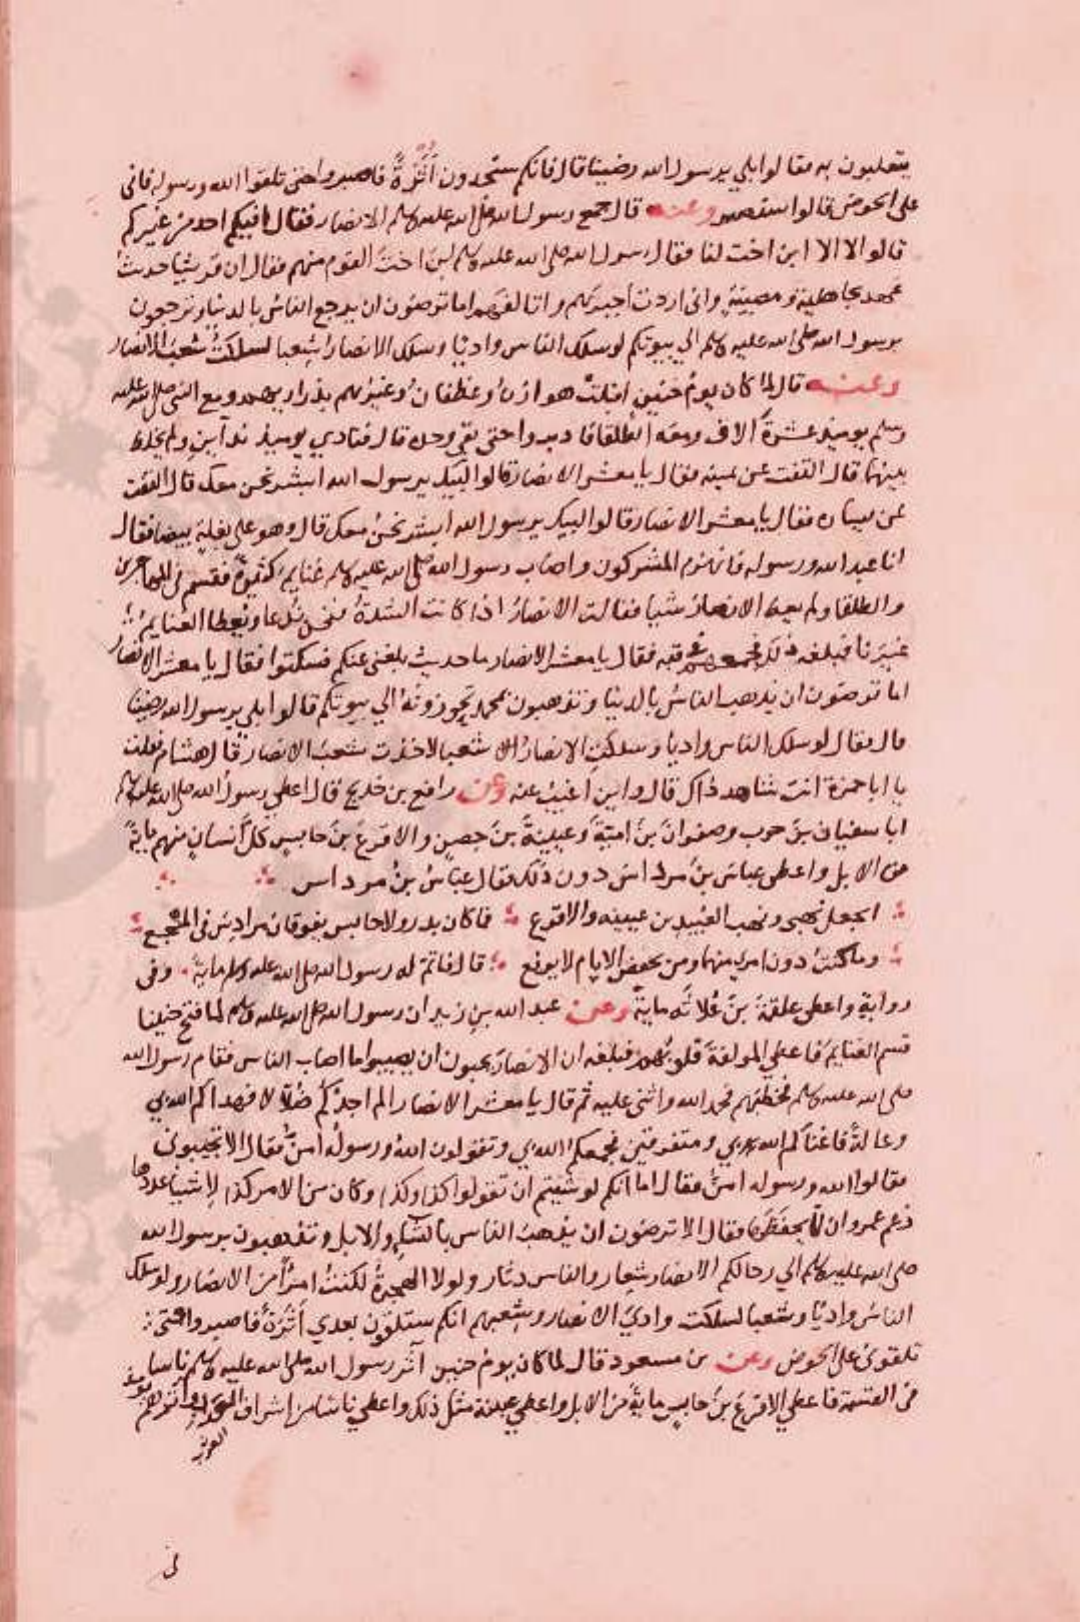 ينقلبون به فقالوا بلى يرسول الله رضينا قال فانكم ستجدون أَثَرَةً فاصبروا حتى تلقوا الله ورسوله فانى
على الحوض قالوا سنصبر وعنه قال جمع رسول الله صلى الله عليه وسلم الانصار فقال افيكم احد من غيركم
قالوا لا الا ابن اخت لنا فقال رسول الله صلى الله عليه وسلم ابن اخت القوم منهم فقال ان قريشا حديث
عهد بجاهلية ومصيبة وانى اردت اجبرهم واتالفهم اما ترضون ان يرجع الناس بالدنيا وترجعون
برسول الله صلى الله عليه وسلم الي بيوتكم لو سلك الناس واديًا وسلك الانصار شعبا لسلكت شعب الانصار
وعنه قال لما كان يوم حنين اقبلت هوازن وغطفان وغيرهم بذراريهم ومع النبى صلى الله عليه
وسلم يوميذ عشرة آلاف ومعه الطلقا فادبروا حتى بقى وحده قال فنادي يوميذ ندآين ولم يخلط
بينهما قال التفت عن يمينه فقال يا معشر الانصار قالوا لبيك يرسول الله ابشر نحن معك قال التفت
عن يساره فقال يا معشر الانصار قالوا لبيك يرسول الله ابشر نحن معك قال وهو على بغلة بيضا فقال
انا عبد الله ورسوله فانهزم المشركون واصاب رسول الله صلى الله عليه وسلم غنايم كثيرة فقسم فى المهاجرين
والطلقا ولم يعط الانصار شيا فقالت الانصار اذا كانت الشدة فنحن ندعا ويعطا الغنايم
غيرنا فبلغه ذلك فجمعهم فى قبه فقال يا معشر الانصار ما حديث بلغنى عنكم فسكتوا فقال يا معشر الانصار
اما ترضون ان يذهب الناس بالدنيا وتذهبون بمحمد تحوزونه الي بيوتكم قالوا بلى يرسول الله رضينا
قال فقال لو سلك الناس واديا وسلكت الانصار شعبا لاخذت شعب الانصار قال هشام فقلت
يا ابا حمزة انت شاهد ذاك قال واين اغيب عنه وعن رافع بن خديج قال اعطي رسول الله صلى الله عليه وسلم
ابا سفيان بن حرب وصفوان بن امية وعيينة بن حصن والاقرع بن حابس كل انسان منهم ماية
من الابل واعطى عباس بن مرداس دون ذلك فقال عباس بن مرداس
اتجعل نهبى ونهب العبيد بين عيينه والاقرع فما كان بدر ولا حابس يفوقان مرادس فى المجمع
وما كنت دون امرء منهما ومن يخفض اليوم لا يرفع قال فاتم له رسول الله صلى الله عليه وسلم ماية وفى
رواية واعطى علقمة بن علاثه ماية وعن عبد الله بن زيد ان رسول الله صلى الله عليه وسلم لما فتح حنينا
قسم الغنايم فاعطي المولفة قلوبهم فبلغه ان الانصار يحبون ان يصيبوا ما اصاب الناس فقام رسول الله
صلى الله عليه وسلم فخطبهم فحمد الله واثنى عليه ثم قال يا معشر الانصار الم اجدكم ضلالا فهداكم الله بي
وعالة فاغناكم الله بي ومتفرقين فجمعكم الله بي وتقولون الله ورسوله امن فقال الا تجيبونى
فقالوا الله ورسوله امن فقال اما انكم لو شيتم ان تقولوا كذا وكذا وكان من الامر كذا لاشيا عددها
زعم عمرو ان لا يحفظها فقال الا ترضون ان يذهب الناس بالشاء والابل وتذهبون برسول الله
صلى الله عليه وسلم الي رحالكم الانصار شعار والناس دثار ولولا الهجرة لكنت امرأ من الانصار ولو سلك
الناس واديًا وشعبا لسلكت وادي الانصار وشعبهم انكم ستلقون بعدي أثرةً فاصبروا حتى
تلقونى على الحوض وعن بن مسعود قال لما كان يوم حنين آثر رسول الله صلى الله عليه وسلم ناسا
فى القسمة فاعطي الاقرع بن حابس ماية من الابل واعطي عيينة مثل ذلك واعطي ناسا من اشراف العرب وآثرهم يوميذ
فى